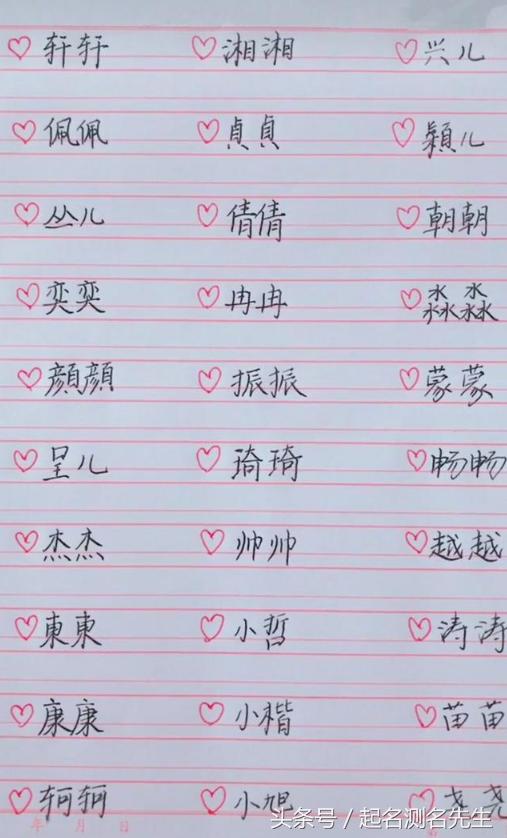 ♡轩轩 ♡湘湘 ♡兴儿
♡佩佩 ♡貞貞 ♡穎儿
♡丛儿 ♡倩倩 ♡朝朝
♡奕奕 ♡冉冉 ♡淼淼
♡顔顔 ♡振振 ♡蒙蒙
♡呈儿 ♡琦琦 ♡畅畅
♡杰杰 ♡帅帅 ♡越越
♡東東 ♡小哲 ♡涛涛
♡康康 ♡小楷 ♡苗苗
♡轲轲 ♡小旭 ♡尧尧
年 月 日
头条号 / 起名测名先生